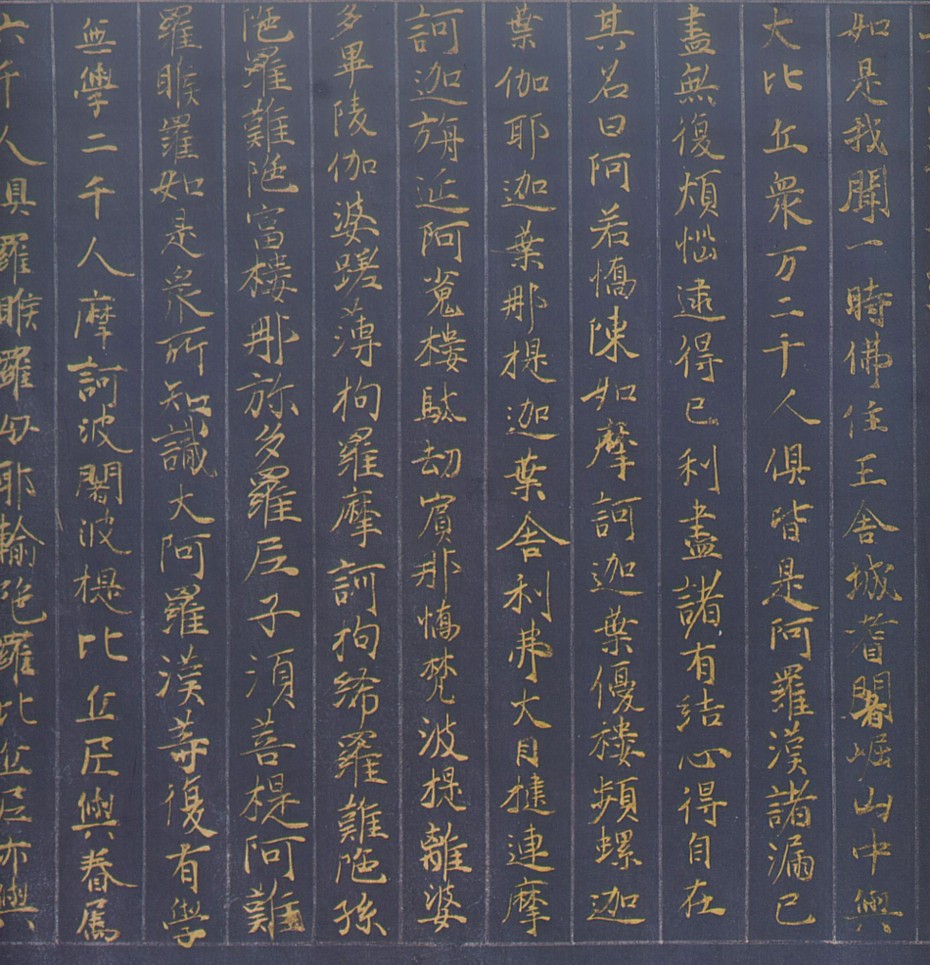 如是我聞一時佛住王舍城耆闍崛山中與
大比丘衆万二千人俱皆是阿羅漢諸漏已
盡無復煩惱逮得已利盡諸有結心得自在
其名曰阿若憍陳如摩訶迦葉優樓頻螺迦
葉伽耶迦葉那提迦葉舍利弗大目揵連摩
訶迦旃延阿㝹樓駄劫賓那憍梵波提離婆
多畢陵伽婆蹉薄拘羅摩訶拘絺羅難陁孫
陁羅難陁富樓那弥多羅尼子須菩提阿難
羅睺羅如是衆所知識大阿羅漢等復有學
無學二千人摩訶波闍波提比丘尼與眷屬
六千人具羅睺羅母耶輸陁羅比丘尼亦與